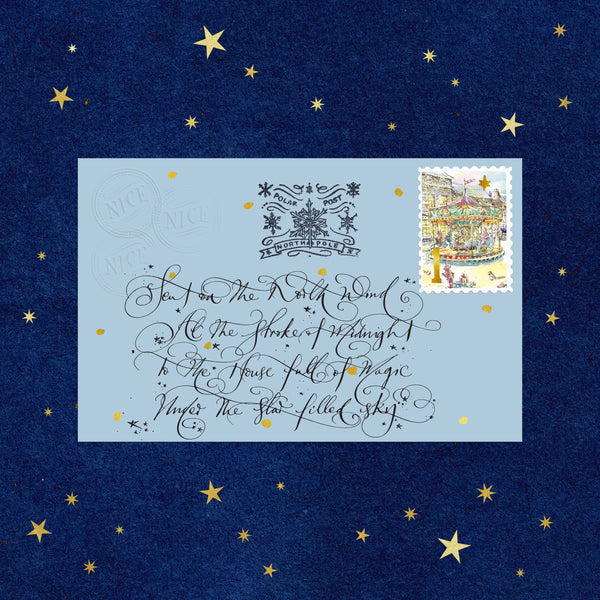 NICE
NICE
NICE
POLAR POST
NORTH POLE
1
Sent on the North Wind
At the Stroke of Midnight
To the House full of Magic
Under the Star filled sky